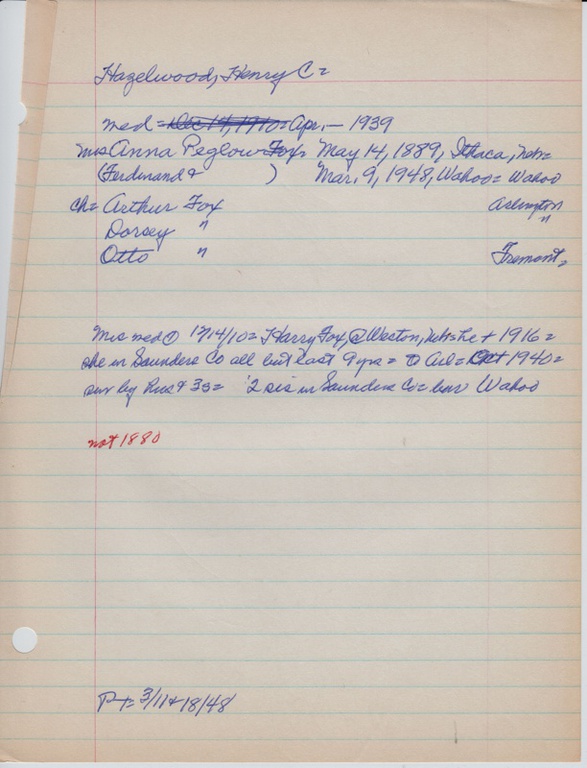 Hazelwood, Henry C =
med = Dec 14, 1910 = Apr. — 1939
Mrs Anna Peglow Fox, May 14, 1889, Ithaca, Neb =
(Ferdinand + ) Mar. 9, 1948, Wahoo = Wahoo
Ch = Arthur Fox Arlington
Dorsey " "
Otto " Fremont,
Mrs med ① 12/14/10 = Harry Fox, @ Weston, Neb = he + 1916 =
she in Saunders Co all but last 9 yrs = to Arl = 1940 =
sur by Hus + 3s = 2 sis in Saunders Co = bur Wahoo
not 1880
P-t = 3/11 + 18/48